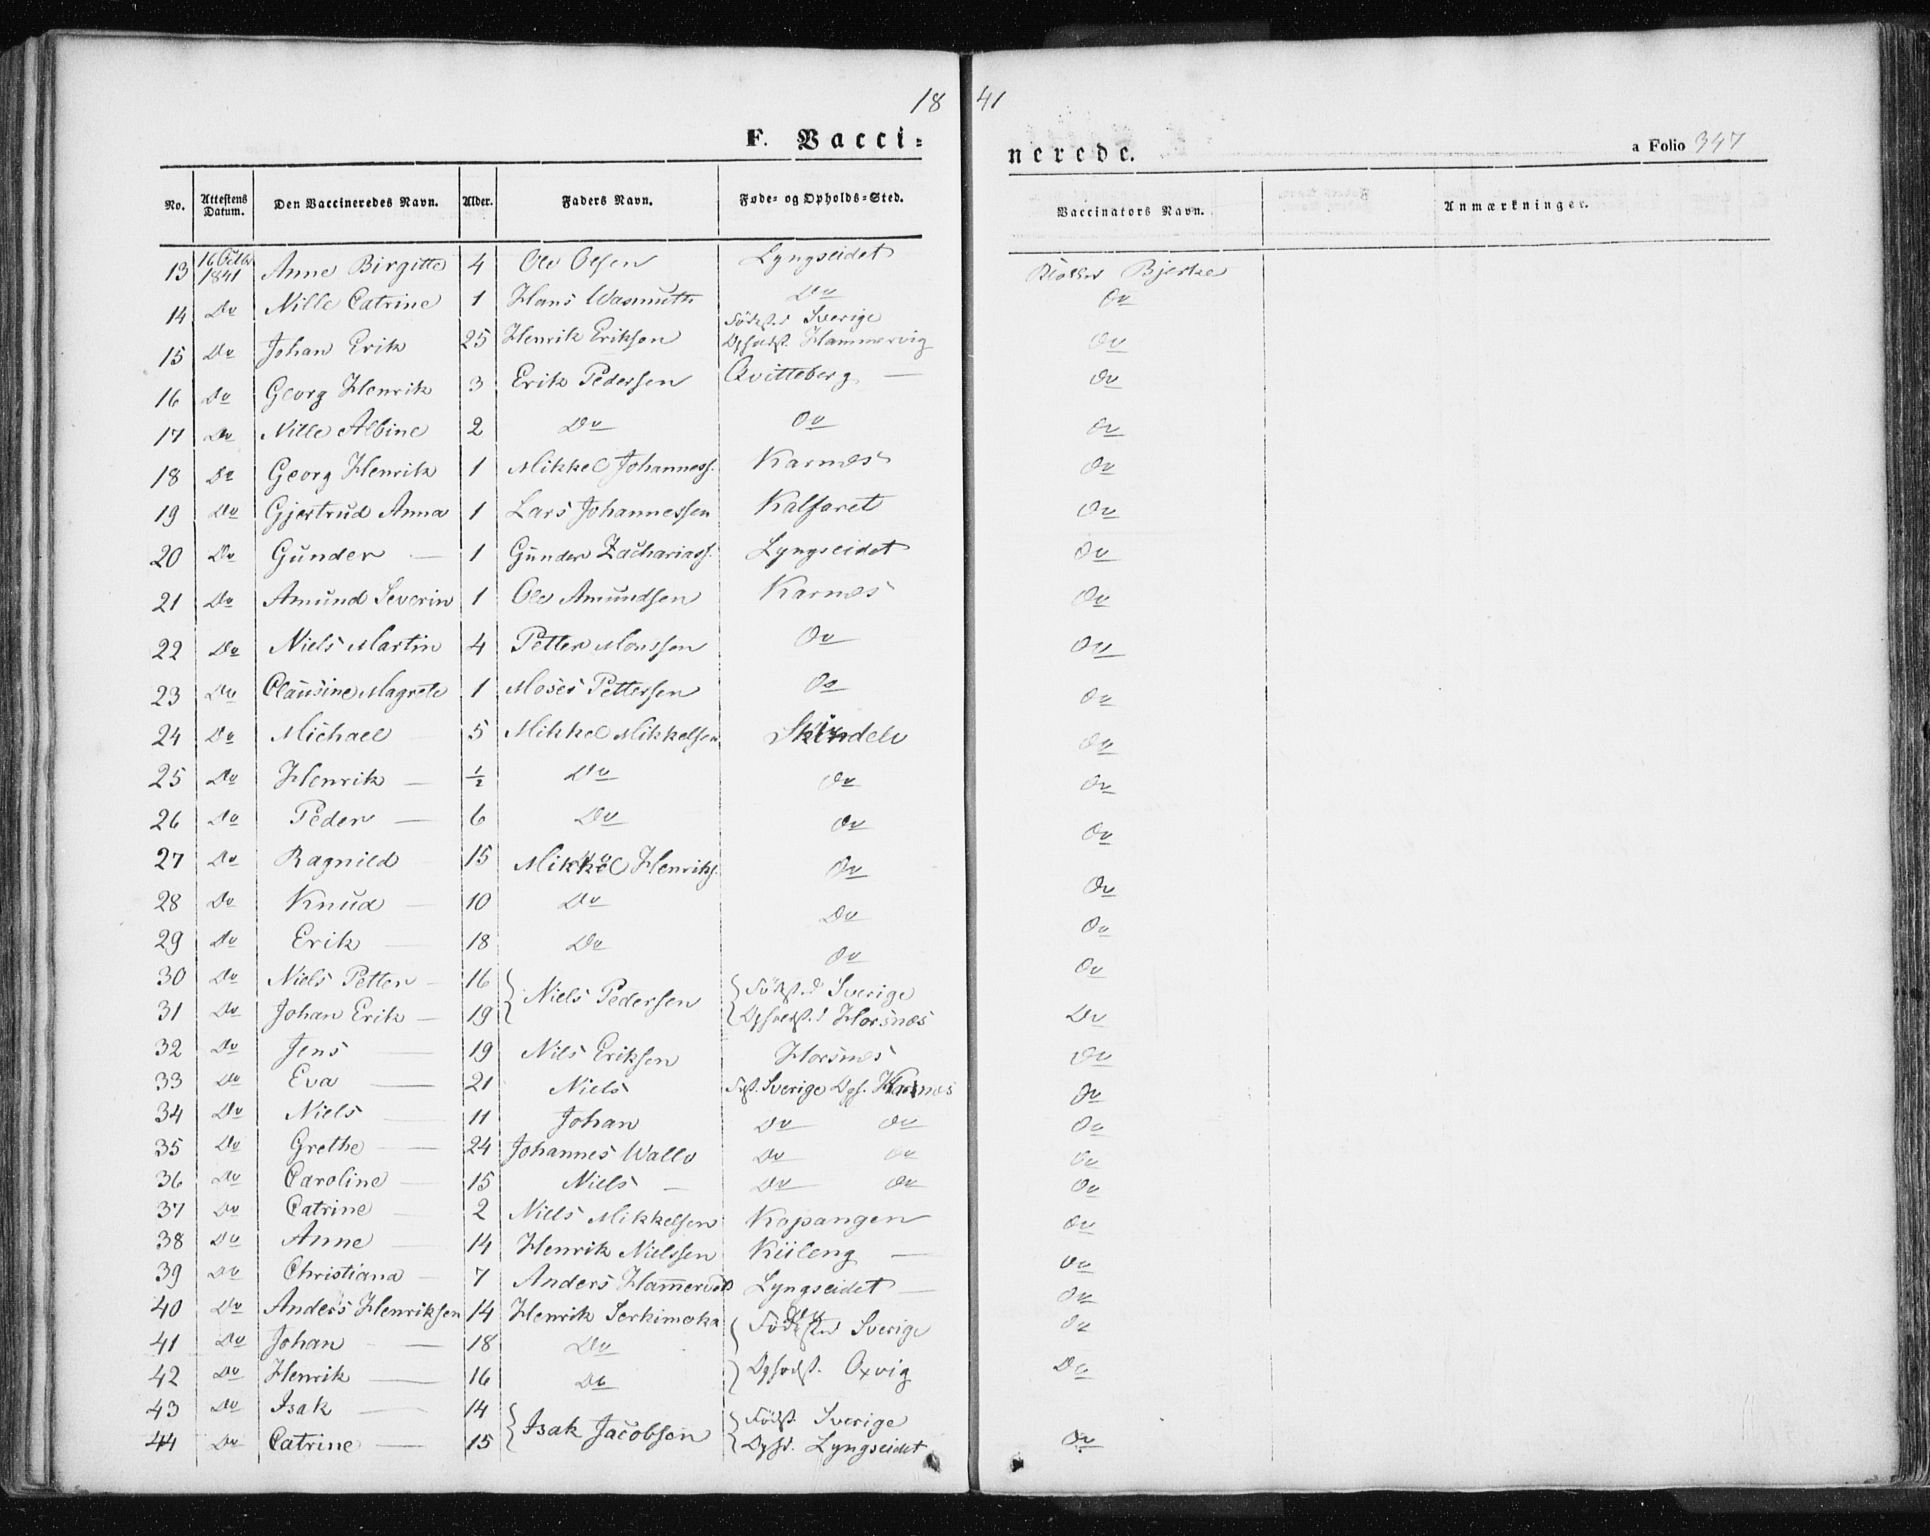 18 41
F. Vacci-nerede. a Folio 347
No. Attestens Datum. Den Vaccineredes Navn. Alder. Faders Navn. Føde- og Opholds-Sted. Vaccinators Navn. Anmærkninger.
13 16 Octbr 1841 Anne Birgitte 4 Ole Olsen Lyngseidet Bjerke
14 Do Nille Catrine 1 Hans Wasmuth Do Do
15 Do Johan Erik 25 Henrik Eriksen Fødest. Sverige Opholdst. Hammervig Do
16 Do Georg Henrik 3 Erik Pedersen Qvitteberg — Do
17 Do Nille Albine 2 Do Do Do
18 Do Georg Henrik 1 Mikkel Johanness. Karnæs Do
19 Do Gjertrud Anna 1 Lars Johannessen Kalfaret Do
20 Do Gunder — 1 Gunder Zachariass. Lyngseidet Do
21 Do Amund Severin 1 Ole Amundsen Karnæs Do
22 Do Niels Martin 4 Petter Monssen Do Do
23 Do Clausine Magrete 1 Moses Pettersen Do Do
24 Do Michael 5 Mikkel Mikkelsen Skindelv Do
25 Do Henrik — ½ Do Do Do
26 Do Peder — 6 Do Do Do
27 Do Ragnild 15 Mikkel Henriks. Do Do
28 Do Knud — 10 Do Do Do
29 Do Erik — 18 Do Do Do
30 Do Niels Petter — 16 Niels Pedersen Fødst.d Sverige Do
31 Do Johan Erik — 19 Opholdst.d Horsnæs Do
32 Do Jens — 19 Nils Eriksen Horsnæs Do
33 Do Eva — 21 Niels Føst. Sverige Oph. Karnæs Do
34 Do Niels — 11 Johan Do Do Do
35 Do Grethe — 24 Johannes Do Do Do
36 Do Caroline — 15 Niels — Do Do Do
37 Do Catrine — 2 Niels Mikkelsen Kopangen Do
38 Do Anne — 14 Henrik Nielssen Kileng — Do
39 Do Christiana — 7 Anders Lyngseidet — Do
40 Do Anders Henriksen 14 Henrik Fødested Sverige Do
41 Do Johan — 18 Do
42 Do Henrik — 16 Do Opholdst. Oxvig Do
43 Do Isak — 14 Isak Jacobsen Fødst. Sverige
44 Do Catrine — 15 Ophd. Lyngseidet Do